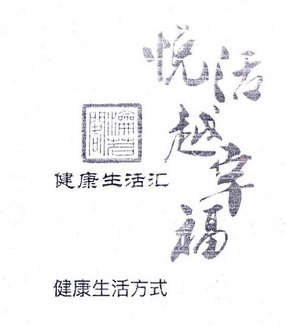 悦活
越幸福
健康生活汇
健康生活方式